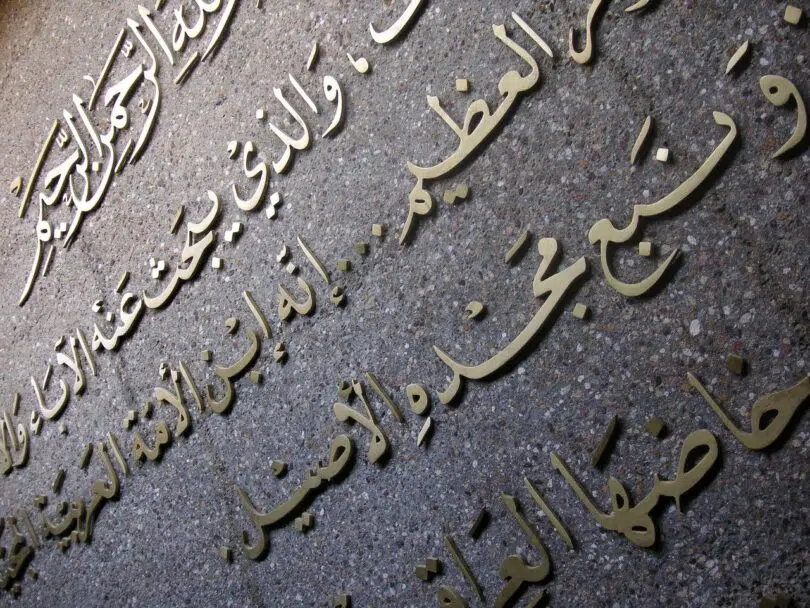 الله الرَّحْمنِ الرَّحيِمْ
وَالذيْ يبحَث عَنْه الآبَاء
العَظيْم ... إنّه ابْن الأمّة العَربيّة
وَنبَع مجْدهِ الأَصيْل.
خاضهَا العراق